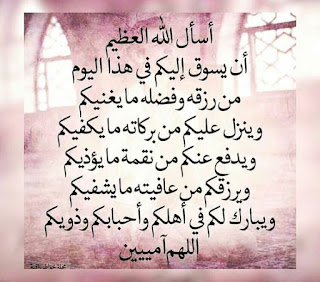 أسأل الله العظيم
أن يسوق إليكم في هذا اليوم
من رزقه وفضله ما يغنيكم
وينزل عليكم من بركاته ما يكفيكم
ويدفع عنكم من نقمة ما يؤذيكم
ويرزقكم من عافيته ما يشفيكم
ويبارك لكم في أهلكم وأحبابكم وذويكم
اللهم آمييين